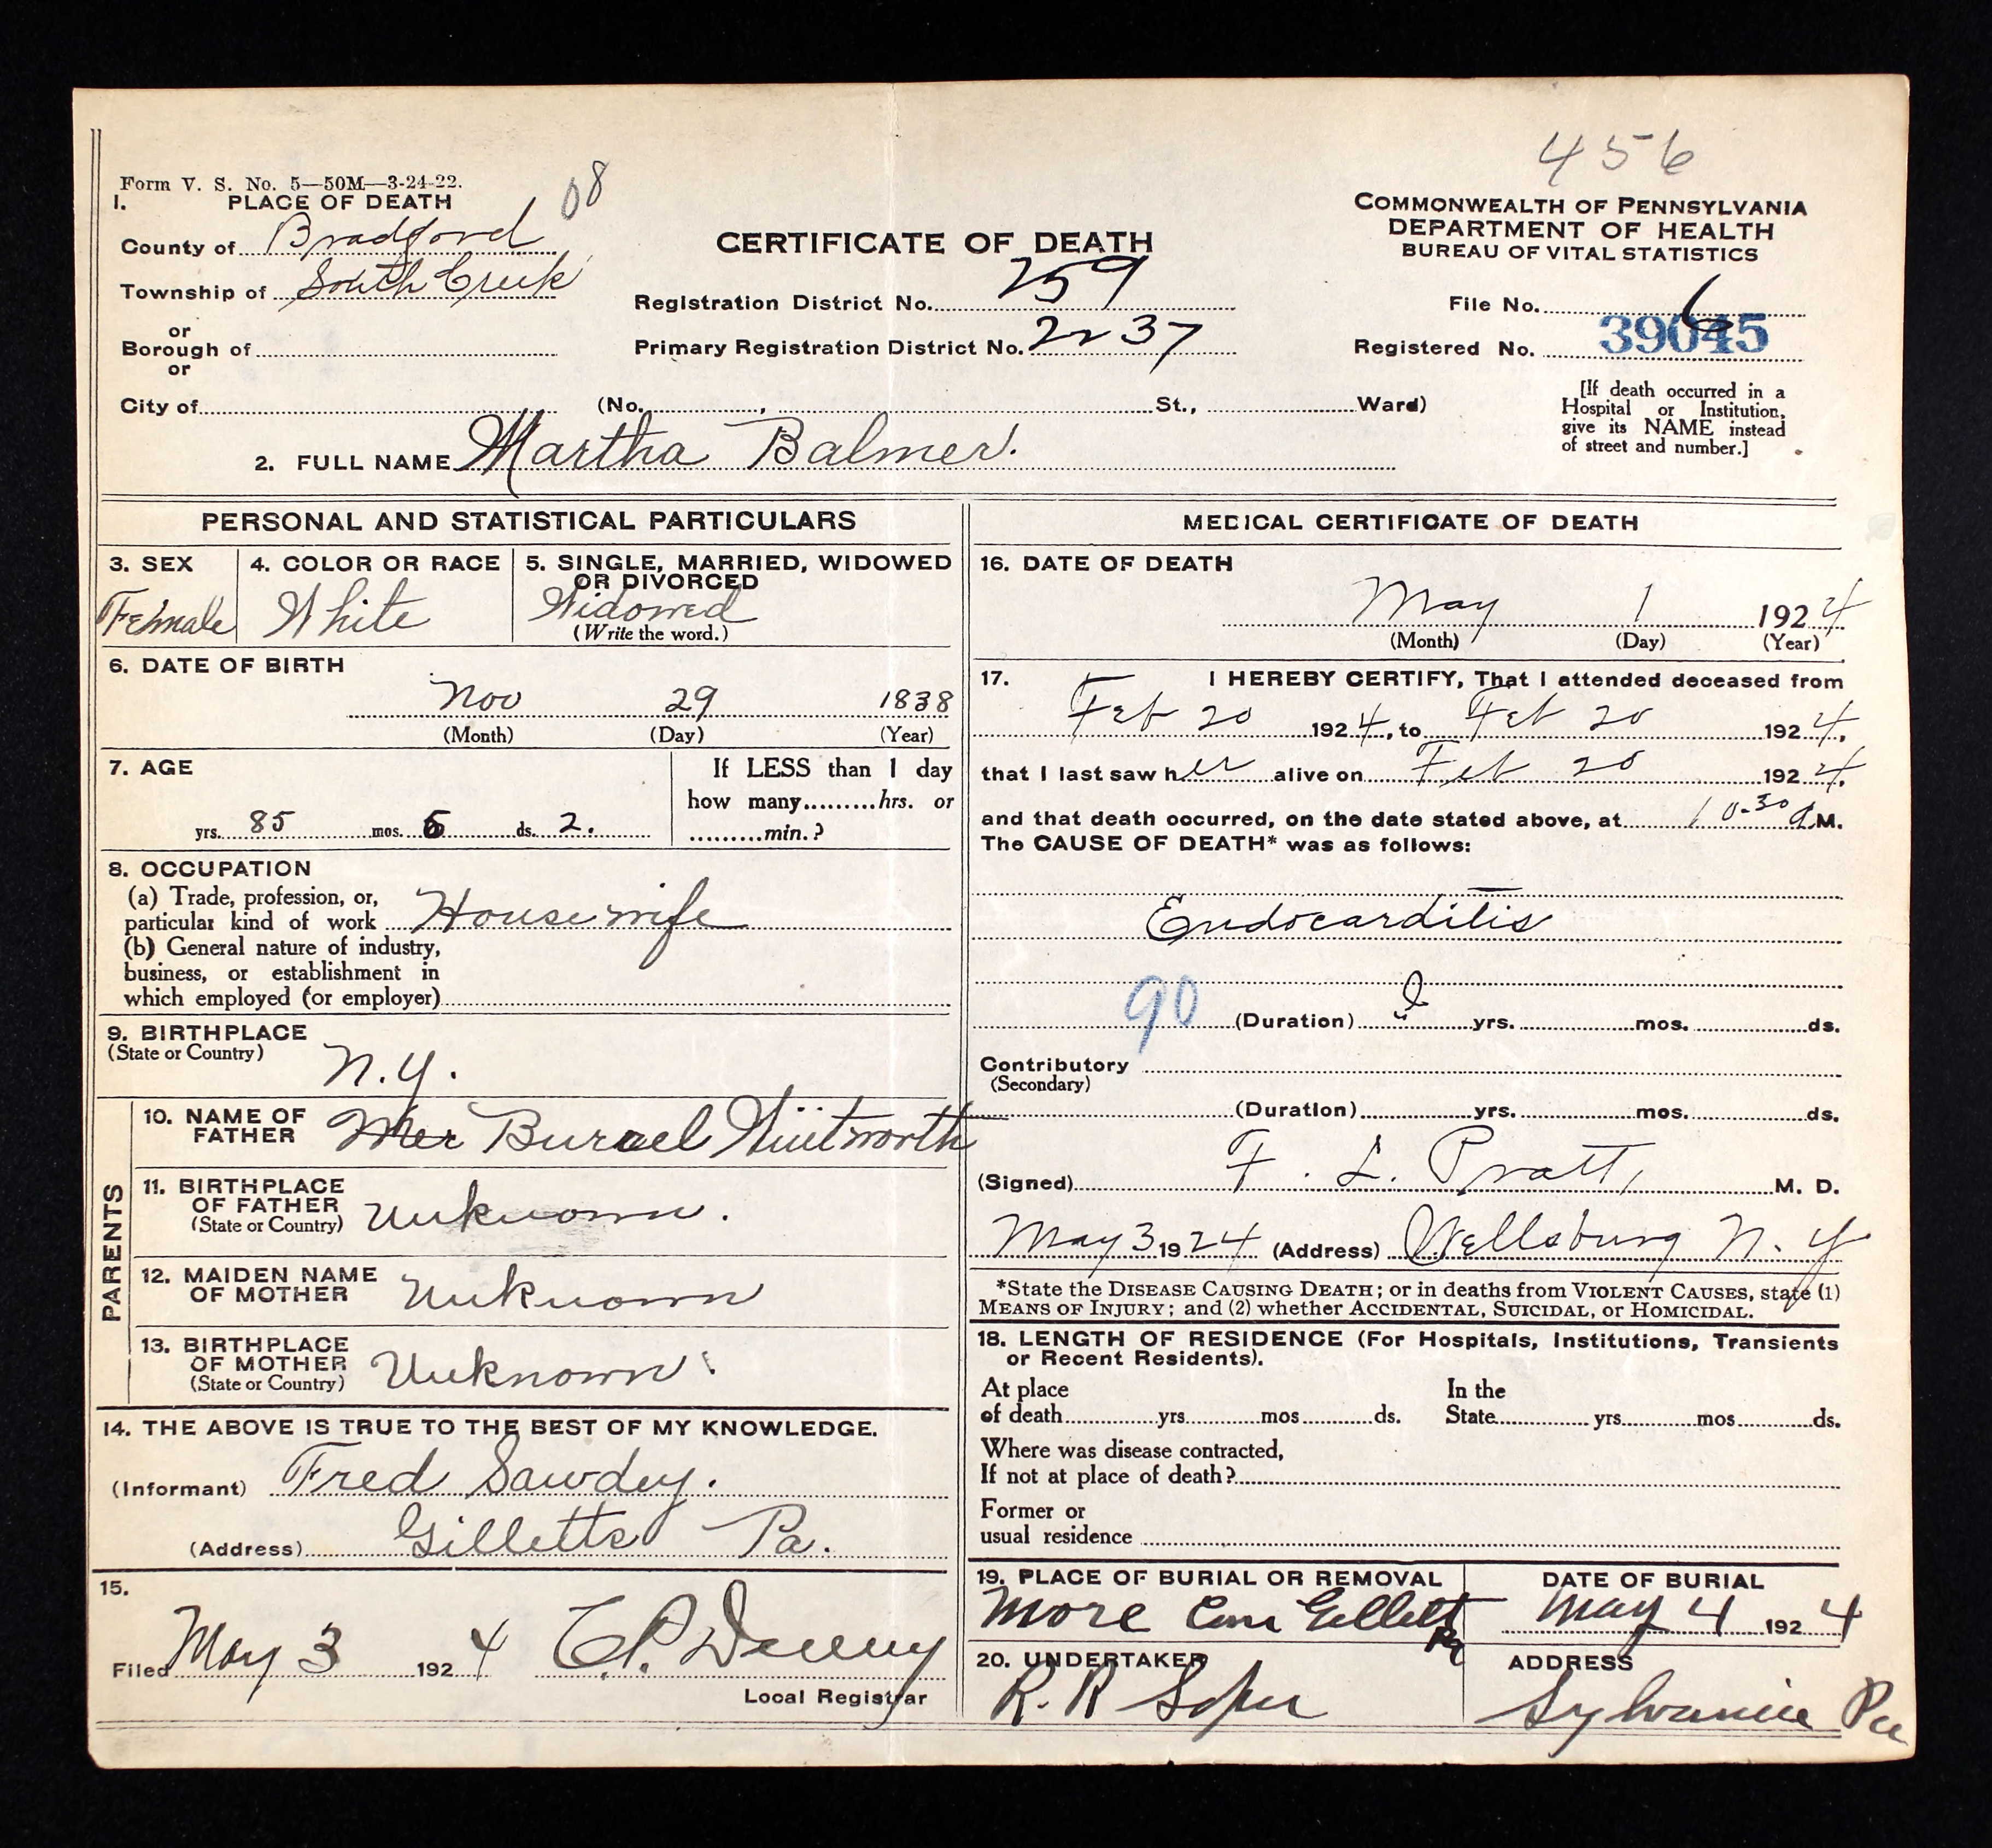 456
Form V. S. No. 5—50M—3-24-22. 08
1. PLACE OF DEATH
County of Bradford
Township of South Creek
or
Borough of
or
City of
CERTIFICATE OF DEATH
Registration District No. 259
Primary Registration District No. 2237
(No. , St., Ward)
COMMONWEALTH OF PENNSYLVANIA
DEPARTMENT OF HEALTH
BUREAU OF VITAL STATISTICS
File No.
6
39045
Registered No.
[If death occurred in a
Hospital or Institution,
give its NAME instead
of street and number.]
2. FULL NAME Martha Balmer.
PERSONAL AND STATISTICAL PARTICULARS
3. SEX
Female
4. COLOR OR RACE
White
5. SINGLE, MARRIED, WIDOWED
OR DIVORCED
Widowed
(Write the word.)
6. DATE OF BIRTH
Nov 29 1838
(Month) (Day) (Year)
7. AGE
yrs. 85 mos. 5 ds. 2.
If LESS than 1 day
how many.........hrs. or
.........min.?
8. OCCUPATION
(a) Trade, profession, or,
particular kind of work Housewife
(b) General nature of industry,
business, or establishment in
which employed (or employer)
9. BIRTHPLACE
(State or Country)
N.Y.
PARENTS
10. NAME OF
FATHER
Burrel
11. BIRTHPLACE
OF FATHER
(State or Country) Unknown.
12. MAIDEN NAME
OF MOTHER Unknown
13. BIRTHPLACE
OF MOTHER
(State or Country) Unknown.
14. THE ABOVE IS TRUE TO THE BEST OF MY KNOWLEDGE.
(Informant) Fred Sawdey.
(Address) Gilletts Pa.
15.
Filed May 3 1924
Local Registrar
MEDICAL CERTIFICATE OF DEATH
16. DATE OF DEATH
May 1 1924
(Month) (Day) (Year)
17. I HEREBY CERTIFY, That I attended deceased from
Feb 20 1924, to Feb 20 1924,
that I last saw her alive on Feb 20 1924,
and that death occurred, on the date stated above, at 10-30 A.M.
The CAUSE OF DEATH* was as follows:
Endocarditis
90 (Duration) yrs. mos. ds.
Contributory
(Secondary)
(Duration) yrs. mos. ds.
(Signed) F. L. Pratt, M. D.
May 3 1924 (Address) Wellsburg N. Y
*State the DISEASE CAUSING DEATH; or in deaths from VIOLENT CAUSES, state (1)
MEANS OF INJURY; and (2) whether ACCIDENTAL, SUICIDAL, or HOMICIDAL.
18. LENGTH OF RESIDENCE (For Hospitals, Institutions, Transients
or Recent Residents).
At place
of death yrs mos ds.
In the
State yrs mos ds.
Where was disease contracted,
If not at place of death?
Former or
usual residence
19. PLACE OF BURIAL OR REMOVAL
More Cem Gillett
Pa
DATE OF BURIAL
May 4 1924
20. UNDERTAKER
R. R Soper
ADDRESS
Sylvania Pa